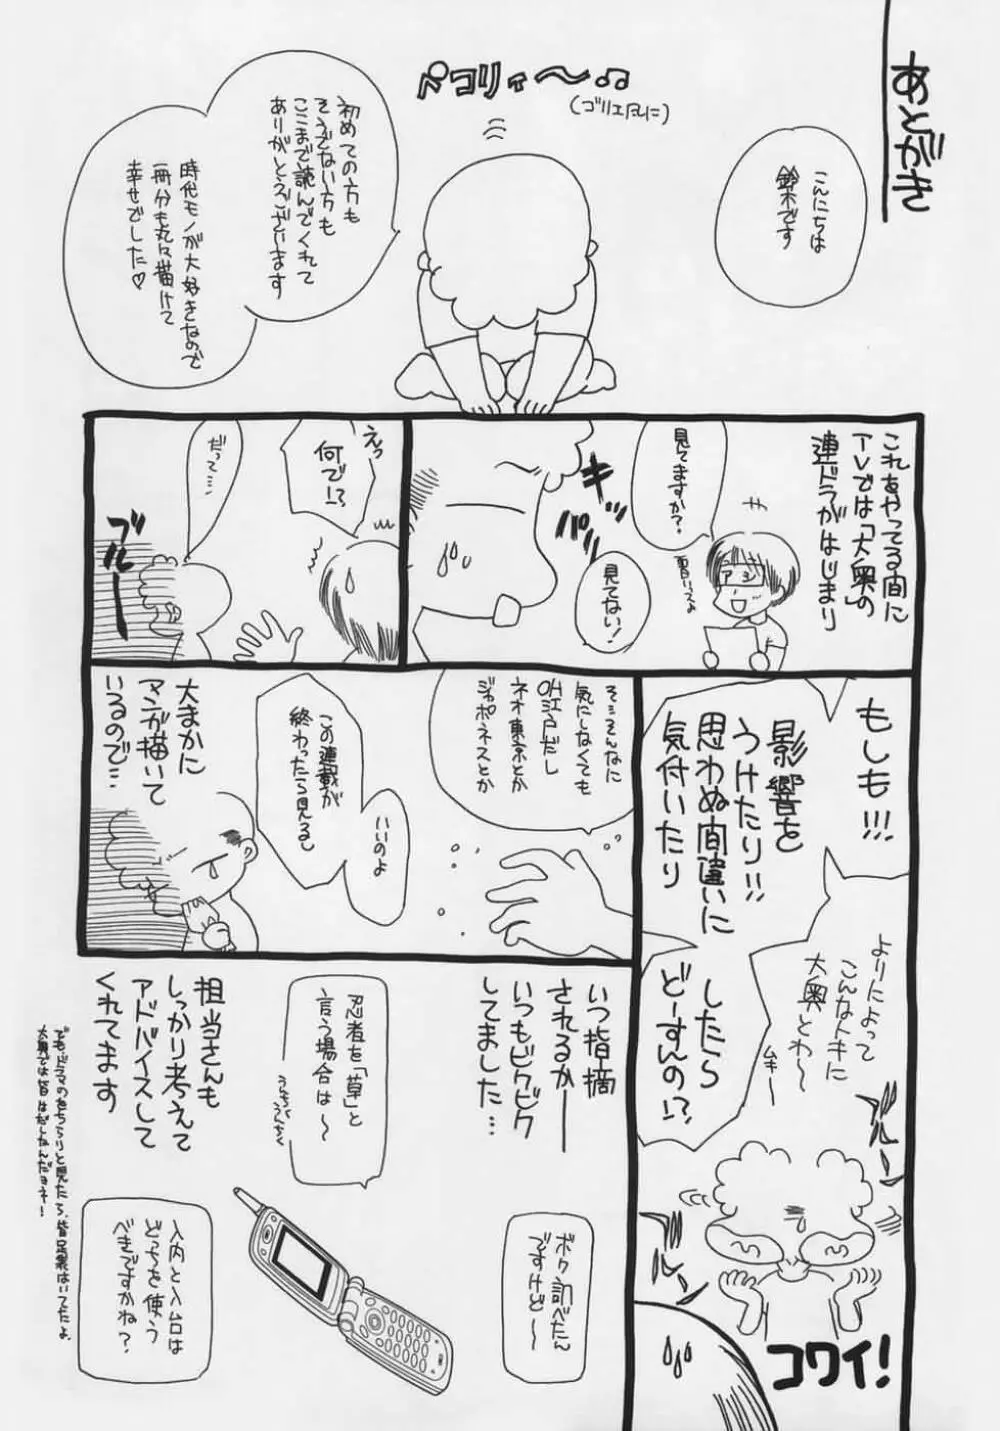 あとがき
こんにちは
鈴木です
ペコリィ〜♫
(ゴリエ風に)
初めての方も
そうでない方も
ここまで読んでくれて
ありがとうございます
時代モノが大好きなので
一冊分も丸々描けて
幸せでした♡
これをやってる間に
TVでは「大奥」の
連ドラがはじまり
見てますか?
アシ
見てない!
キッ
えっ
何で!?
だって…
ブルーー
もしも!!!
影響を
うけたり!!
思わぬ間違いに
気付いたり
したら
どーすんの!?
よりによって
こんなトキに
大奥とわ〜
ムキー
ブルン
ブルン
コワイ!
そ…そんなに
気にしなくても
OH江戸だし
ネオ東京とか
ジャポネスとか
いいのよ
この連載が
終わったら見るし
大まかに
マンガ描いて
いるので…
いつ指摘
されるかー
いつもビクビク
してました…
忍者を「草」と
言う場合は〜
うんちくうんちく
担当さんも
しっかり考えて
アドバイスして
くれてます
ボク調べたん
ですけど〜
入内と入台は
どっちを使う
べきですかね?
でも、ドラマのをちらりと見たら、皆足袋はいてたよ、
大奥では皆はだしなんだヨネー!